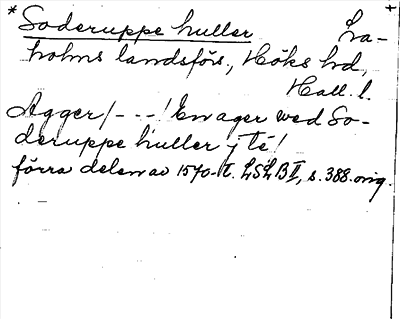 * Soderuppe huller La-
holms landsförs., Höks hd,
Hall. l.
Agger/---! En ager wed So-
deruppe huller j té!
förra delen av 1570-t. LSLB II, s. 388. orig.